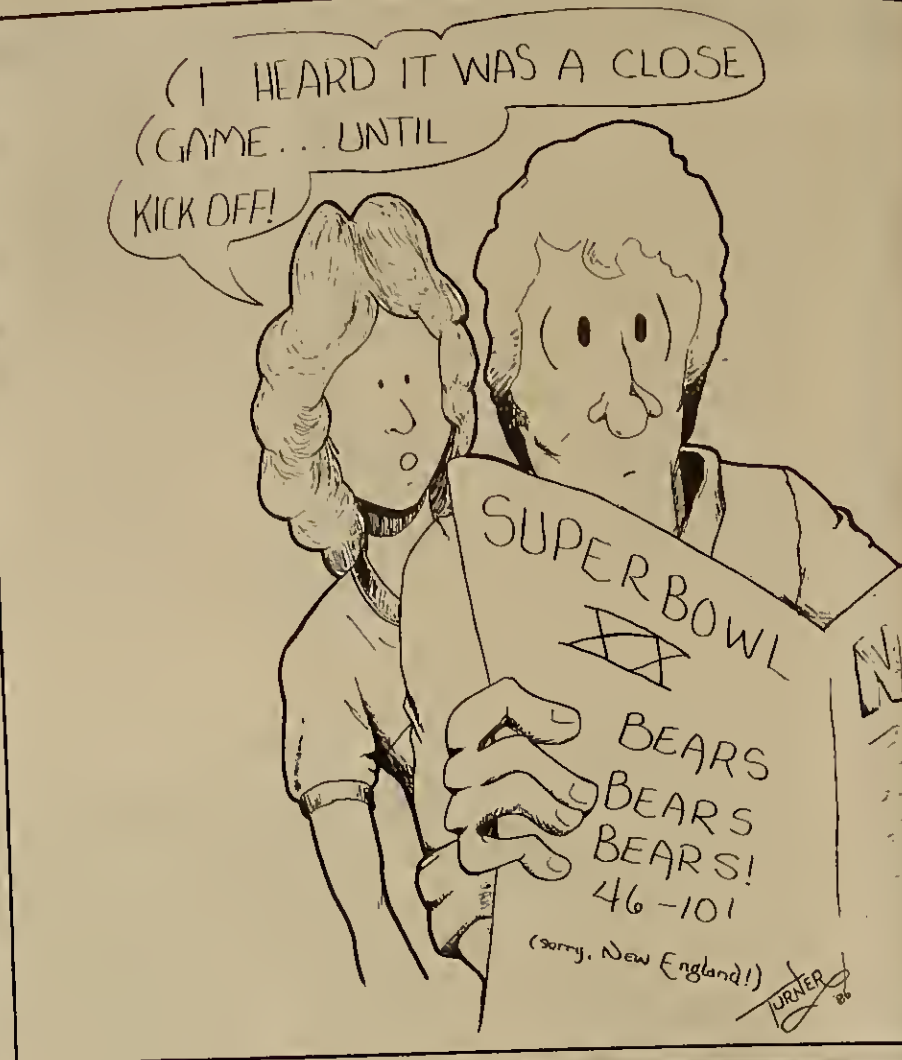 I HEARD IT WAS A CLOSE
GAME... UNTIL
KICK OFF!
SUPERBOWL
XX
BEARS
BEARS
BEARS!
46-10!
(sorry, New England!)
TURNER '86
N